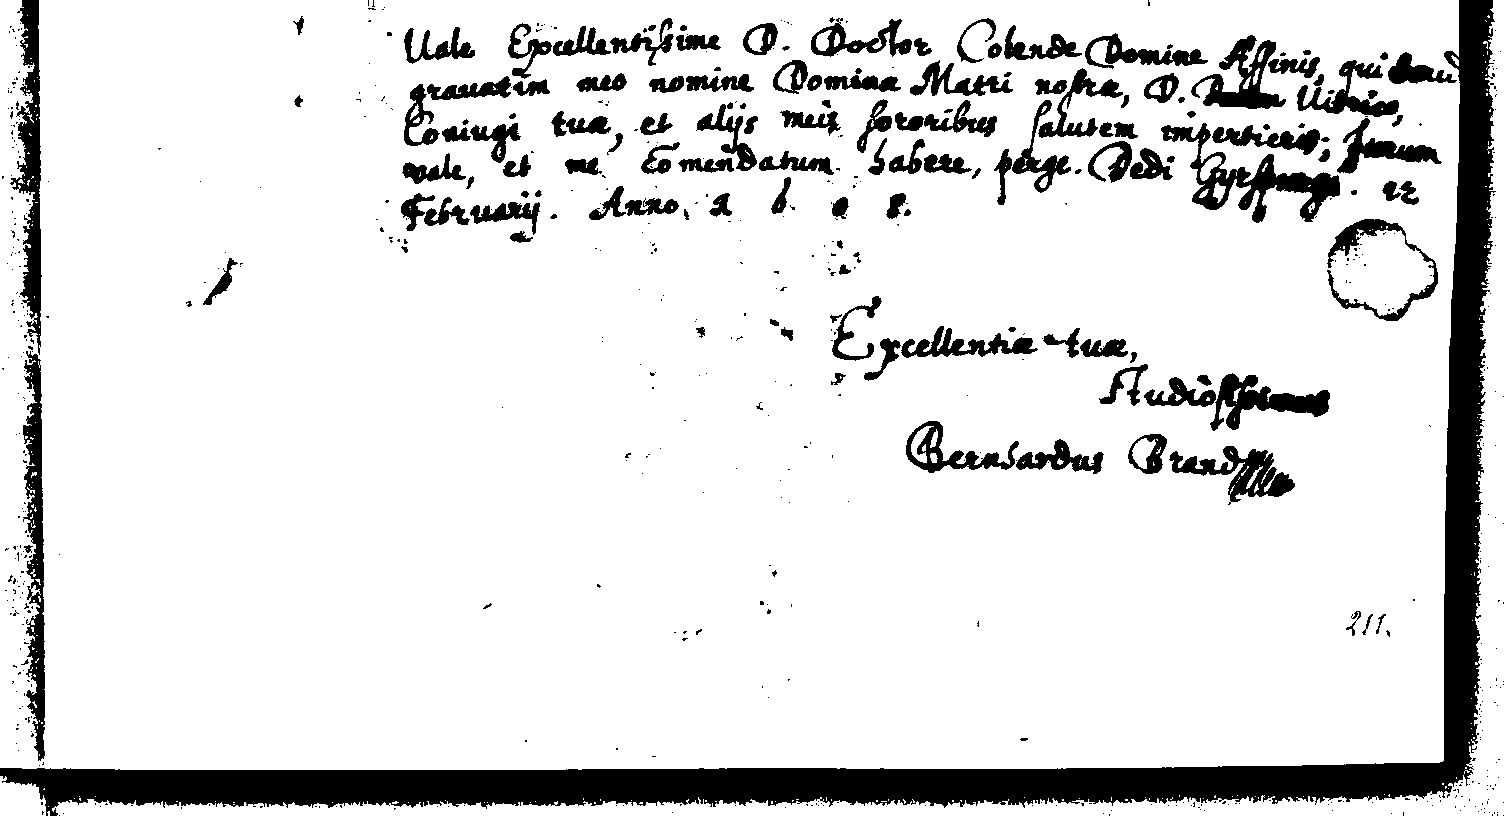 Vale Excellentissime D. Doctor Colende Domine Affinis, qui haud
grauatim meo nomine Dominæ Matri nostræ, D. Vitrico,
Coniugi tuæ, et alijs meis sororibus salutem impertieris; Iterum
vale, et me Comendatum habere, perge. Dedi 12
Februarij. Anno. 1608.
Excellentiæ tuæ,
Studiosissimus
Bernhardus Brand
211.